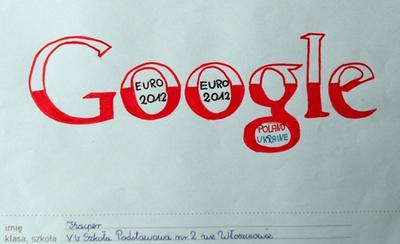 Google
EURO
2012
EURO
2012
POLAND
UKRAINE
imię Kacper
klasa, szkoła V b Szkoła Podstawowa nr 2 we